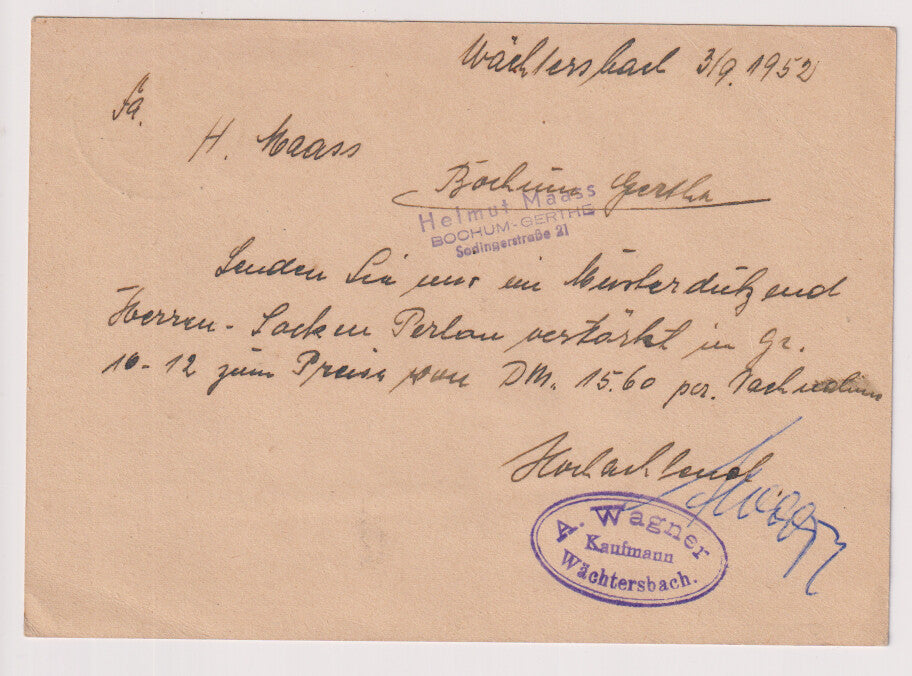 Wächtersbach 3/9. 1952
Fa.
H. Maass
Bochum Gerthe
Helmut Maass
BOCHUM-GERTHE
Sodingerstraße 21
Senden Sie mir ein Musterdutzend
Herren-Socken Perlon verstärkt in Gr.
10-12 zum Preise von DM. 15.60 per. Nachnahme
Hochachtend
A. Wagner
Kaufmann
Wächtersbach.